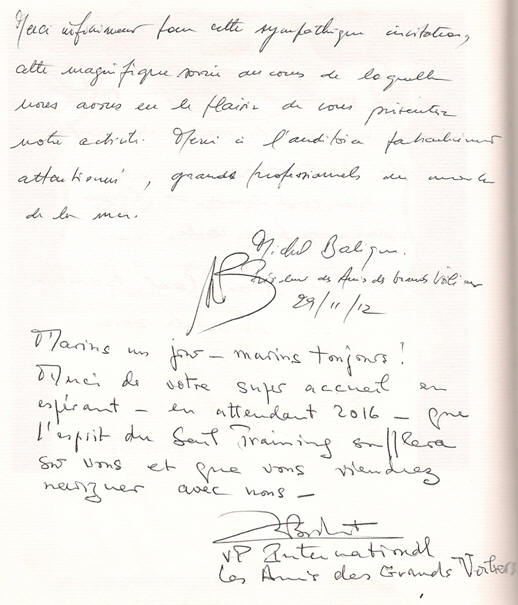 Merci infiniment pour cette sympathique invitation,
cette magnifique soirée au cours de laquelle
nous avons eu le plaisir de vous présenter
notre activité. Merci à l'auditoire particulièrement
attentionné, grands professionnels du monde
de la mer.
Michel Balique.
Président des Amis des Grands Voiliers
29/11/12
Marins un jour - marins toujours !
Merci de votre super accueil en
espérant - en attendant 2016 - que
l'esprit du Sail Training soufflera
sur vous et que vous viendrez
naviguer avec nous -
VP International
Les Amis des Grands Voiliers